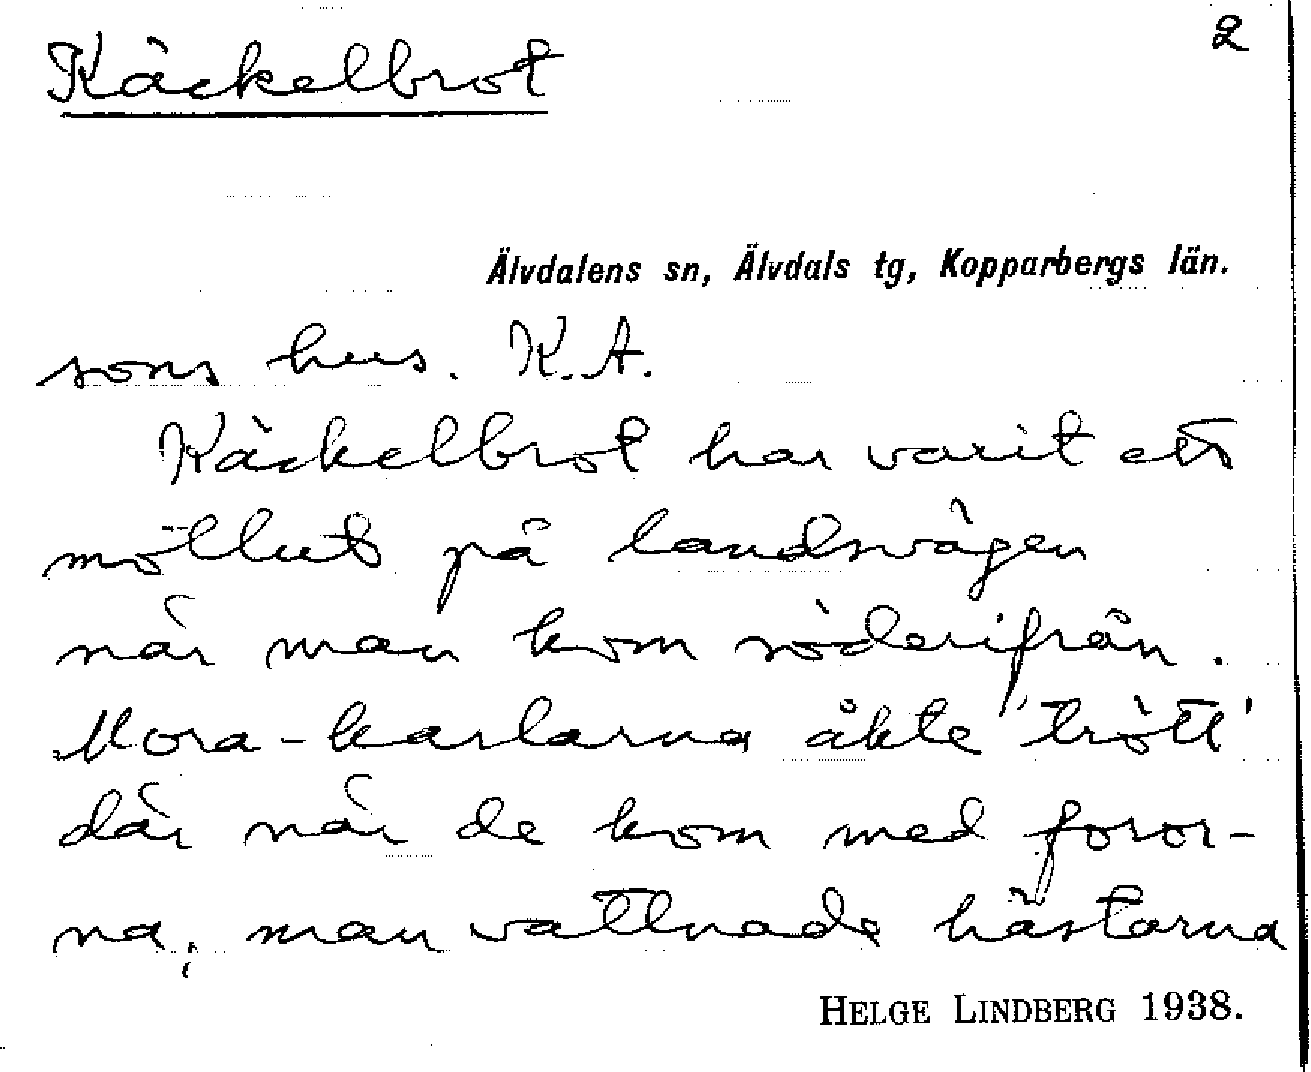 2
Käckelbrot
Älvdalens sn, Älvdals tg, Kopparbergs län.
sons hus. K.A.
Käckelbrot har varit ett
möllut på landsvägen
när man kom söderifrån.
Mora-karlarna åkte 'trött'
där när de kom med foror-
na; man vattnade hästarna
HELGE LINDBERG 1938.